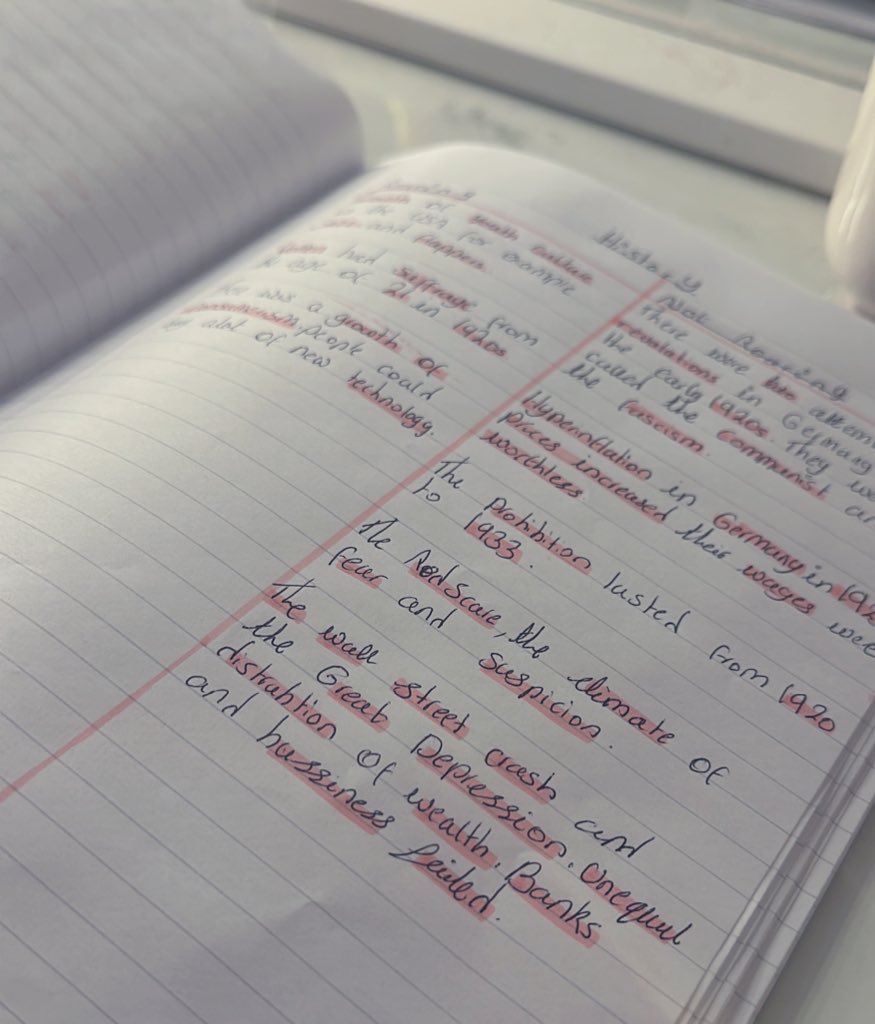 History
Roaring
Growth of youth culture
in the USA for example
and flappers.
had suffrage from
age of 21 in 1920s
was a growth of
consumerism. people could
alot of new technology.
Not Roaring
There were two attem
revolutions in Germany
the early 1920s. They we
called the communist an
the fascism.
Hyperinflation in Germany in 192
prices increased their wages were
worthless.
The prohibition lasted from 1920
to 1933.
The Red Scare, the climate of
fear and suspicion.
The wall street crash and
the Great Depression. Unequal
distrubtion of wealth. Banks
and bussiness failed.